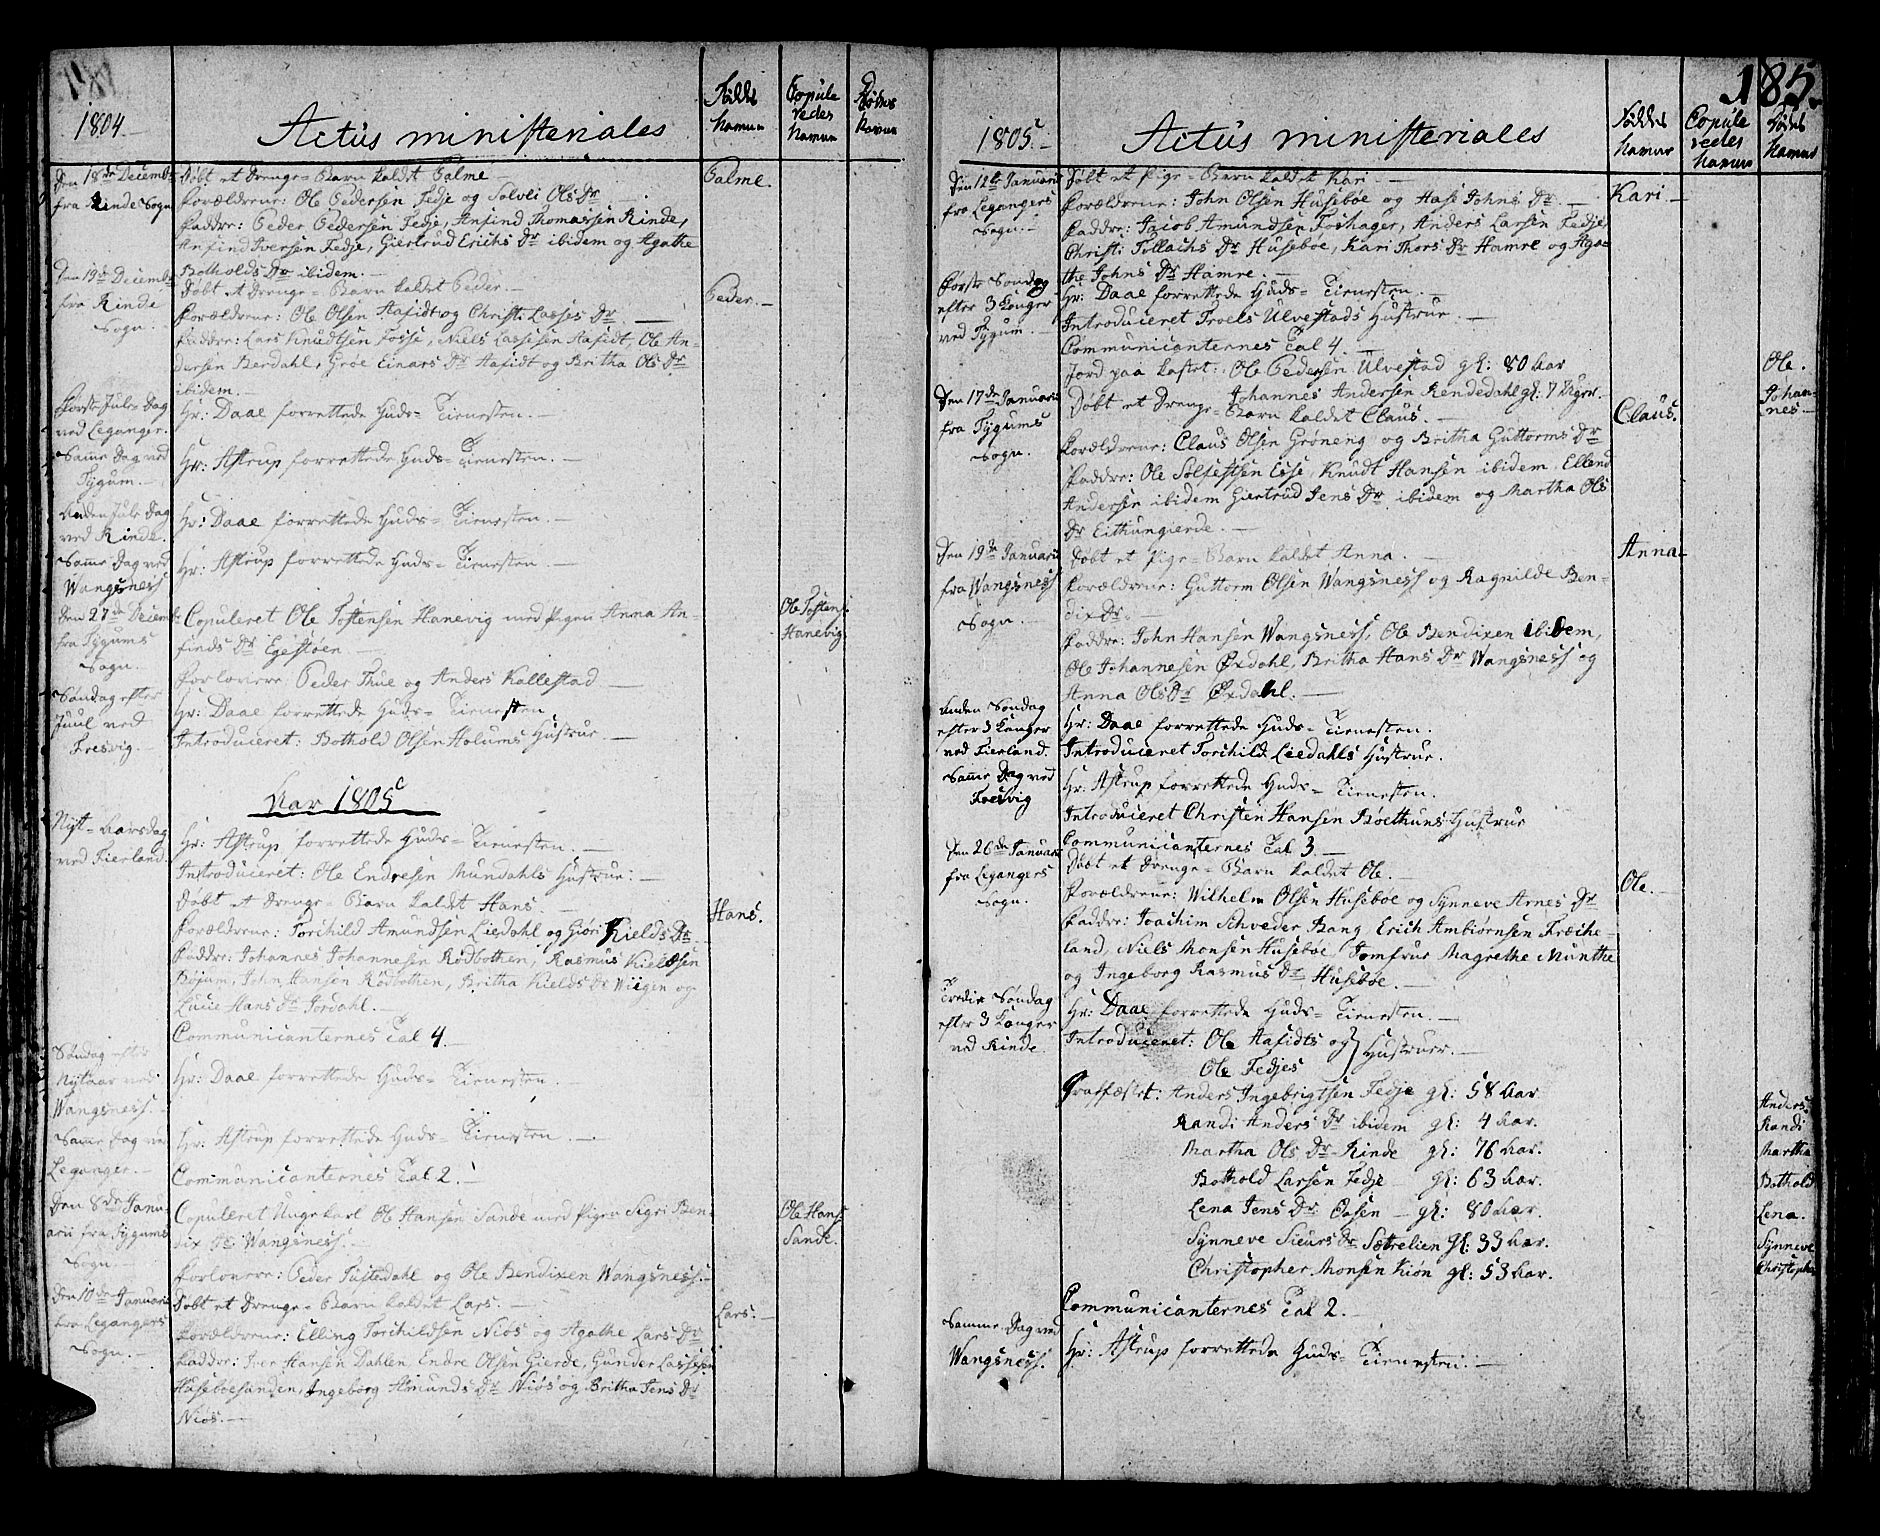 1804.
Actus ministeriales
Føddes Navne
Copule redes Navne
Dødes Navne
Den 18de Decembr fra Rinde Sogn
Døbt et Drenge-Barn kaldet Palme.
Palme.
Forældrene: Ole Pedersen Fedje og Solvei Ols Dr
Faddre: Peder Pedersen Fedje, Anfind Thomassen Rinde,
Anfind Iversen Fedje, Giertrud Erichs Dr ibidem og Agathe
Botholds Dr ibidem.
Den 19de Decembr fra Rinde Sogn.
Døbt et Drenge-Barn kaldet Peder.
Peder.
Forældrene: Ole Olsen Hafidt og Christi Lasses Dr
Faddre: Lars Knudtsen Fosse, Niels Lassesen Hafidt, Ole An-
dersen Berdahl, Grøe Einars Dr Hafidt og Britha Ols Dr
ibidem.
Første Jule Dag ved Leganger.
Hr: Daae forrettede Guds-Tienesten.
Samme Dag ved Tygum.
Hr: Astrup forrettede Guds-Tienesten.
Anden Jule Dag ved Rinde.
Hr: Daae forrettede Guds-Tienesten.
Samme Dag ved Wangsness
Hr: Astrup forrettede Guds-Tienesten.
Den 27de Decemb: fra Tygums Sogn.
Copuleret Ole Tostensen Hanevig med Pigen Anna An-
finds Dr Egestøen.
Ole Tostens: Hanevig
Forlovere: Peder Thue og Anders Kallestad
Søndag efter Juul ved Fresvig.
Hr: Daae forrettede Guds-Tienesten
Introduceret: Bothold Olsen Holums Hustrue.
Aar 1805
Nyt-Aarsdag ved Fierland.
Hr: Astrup forrettede Guds-Tienesten.
Introduceret: Ole Endresen Mundahls Hustrue.
Døbt et Drenge-Barn kaldet Hans.
Hans.
Forældrene: Torchild Amundsen Liedahl og Giøri Kields Dr
Faddre: Johannes Johannesen Rødbotten, Rasmus Kieldsen
Bøjum, John Hansen Rødbotten, Britha Kields Dr Wigen og
Lucie Hans Dr Jordahl.
Communicanternes Tal 4.
Søndag efter Nytaar ved Wangsness.
Hr: Daae forrettede Guds-Tienesten.
Samme Dag ved Leganger.
Hr: Astrup forrettede Guds-Tienesten.
Communicanternes Tal 2.
Den 8de Janu-arii fra Tygums Sogn.
Copuleret Ungekarl Ole Hansen Sande med Pigen Sigri Ben-
dix Dr Wangsness.
Ole Hans: Sande.
Forlovere: Peder Tustedahl og Ole Bendixen Wangsness.
Den 10de Januarii fra Legangers Sogn.
Døbt et Drenge-Barn kaldet Lars.
Lars.
Forældrene: Elling Torchildsen Niøs og Agathe Lars Dr
Faddre: Iver Hansen Dahlen, Endre Olsen Gierde, Gunder Lassesen
Huseboesanden, Ingeborg Amunds Dr Niøs og Britha Jens Dr
Niøs.
185.
1805.
Actus ministeriales
Føddes Navne
Copule redes Navne
Dødes Navne
Den 12te Januarii fra Legangers Sogn.
Døbt et Pige-Barn kaldet Kari.
Kari.
Forældrene: John Olsen Husebøe og Hase Johns Dr
Faddre: Jacob Amundsen Foshager, Anders Larsen Fedje,
Christi Tollachs Dr Husebøe, Kari Thors Dr Hamre og Aga-
the Johns Dr Hamre.
Første Søndag efter 3 Konger ved Tygum.
Hr: Daae forrettede Guds-Tienesten.
Introduceret Troels Ulvestads Hustrue.
Communicanternes Tal 4
Jord paa kastet: Ole Pedersen Ulvestad gl: 80 Aar
Ole.
Johannes Andersen Rendedahl gl: 7 Uger.
Johan-nes.
Den 17de Januarii fra Tygums Sogn.
Døbt et Drenge-Barn kaldet Claus.
Claus.
Forældrene: Claus Olsen Grøneng og Britha Guttorms Dr
Faddre: Ole Solfestsen Esse, Knudt Hansen ibidem, Ellend
Andersen ibidem Giertrud Jens Dr ibidem og Martha Ols
Dr Eithungierde.
Den 19de Januarii fra Wangsness Sogn.
Døbt et Pige-Barn kaldet Anna.
Anna
Forældrene: Guttorm Olsen Wangsness og Ragnilde Ben-
dix Dr.
Faddre: John Hansen Wangsness, Ole Bendixen ibidem,
Ole Johannesen Øxdahl, Britha Hans Dr Wangsness og
Anna Ols Dr Øxdahl.
Anden Søndag efter 3 Konger ved Fierland.
Hr: Daae forrettede Guds-Tienesten.
Introduceret Torchild Leedahls Hustrue.
Samme Dag ved Fresvig
Hr: Astrup forrettede Guds-Tienesten.
Introduceret Christen Hansen Bøethuns Hustrue
Communicanternes Tal 3.
Den 26de Januarii fra Legangers Sogn.
Døbt et Drenge-Barn kaldet Ole.
Ole.
Forældrene: Wilhelm Olsen Husebøe og Synneve Arnes Dr
Faddre: Joachim Schveder Bang Erich Ambiørnsen Fræche-
land, Niels Monsen Husebøe, Jomfrue Magrethe Munthe
og Ingeborg Rasmus Dr Husebøe.
Tredie Søndag efter 3 Konger ved Rinde.
Hr: Daae forrettede Guds-Tienesten.
Introduceret: Ole Hafidts og } Hustruer.
Ole Fedjes
Graffæstet: Anders Ingebrigtsen Fedje gl: 58 Aar.
Anders.
Randi Anders Dr ibidem gl: 4 Aar.
Randi
Martha Ols Dr Rinde gl: 76 Aar.
Martha
Bothold Larsen Fedje gl: 63 Aar.
Bothold
Lena Jens Dr Oasen gl: 80 Aar.
Lena.
Synneve Sieurs Dr Sætrelien gl: 33 Aar.
Synneve
Christopher Monsen Kiøn gl: 53 Aar.
Christopher
Communicanternes Tal 2.
Samme Dag ved Wangsness.
Hr: Astrup forrettede Guds-Tienesten.